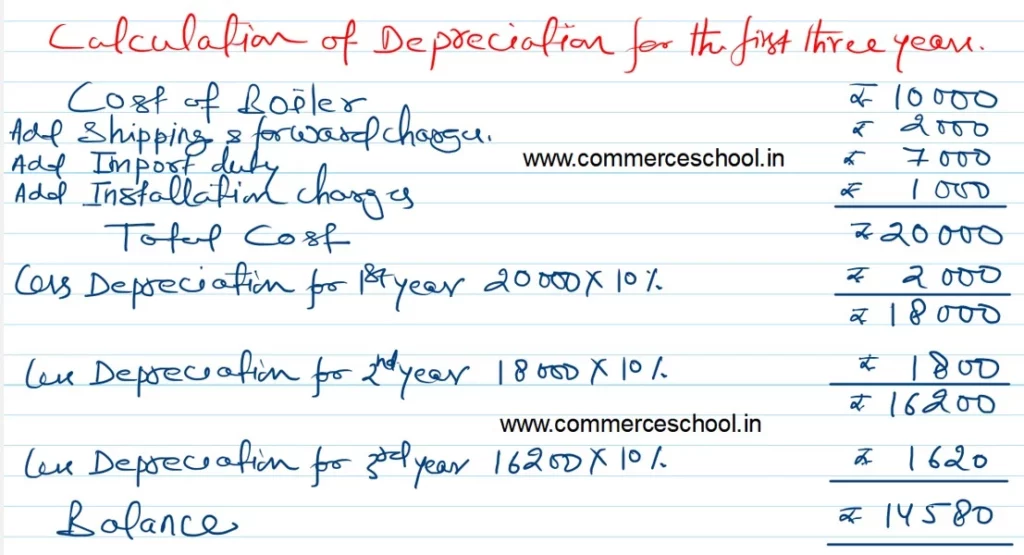 Calculation of Depreciation for the first three years.
Cost of Boiler ₹ 10000
Add Shipping & forward charges. ₹ 2000
www.commerceschool.in
Add Import duty ₹ 7000
Add Installation charges ₹ 1000
Total Cost ₹ 20000
Less Depreciation for 1st year 20000 X 10% ₹ 2000
₹ 18000
Less Depreciation for 2nd year 18000 X 10% ₹ 1800
₹ 16200
www.commerceschool.in
Less Depreciation for 3rd year 16200 X 10% ₹ 1620
Balance ₹ 14580